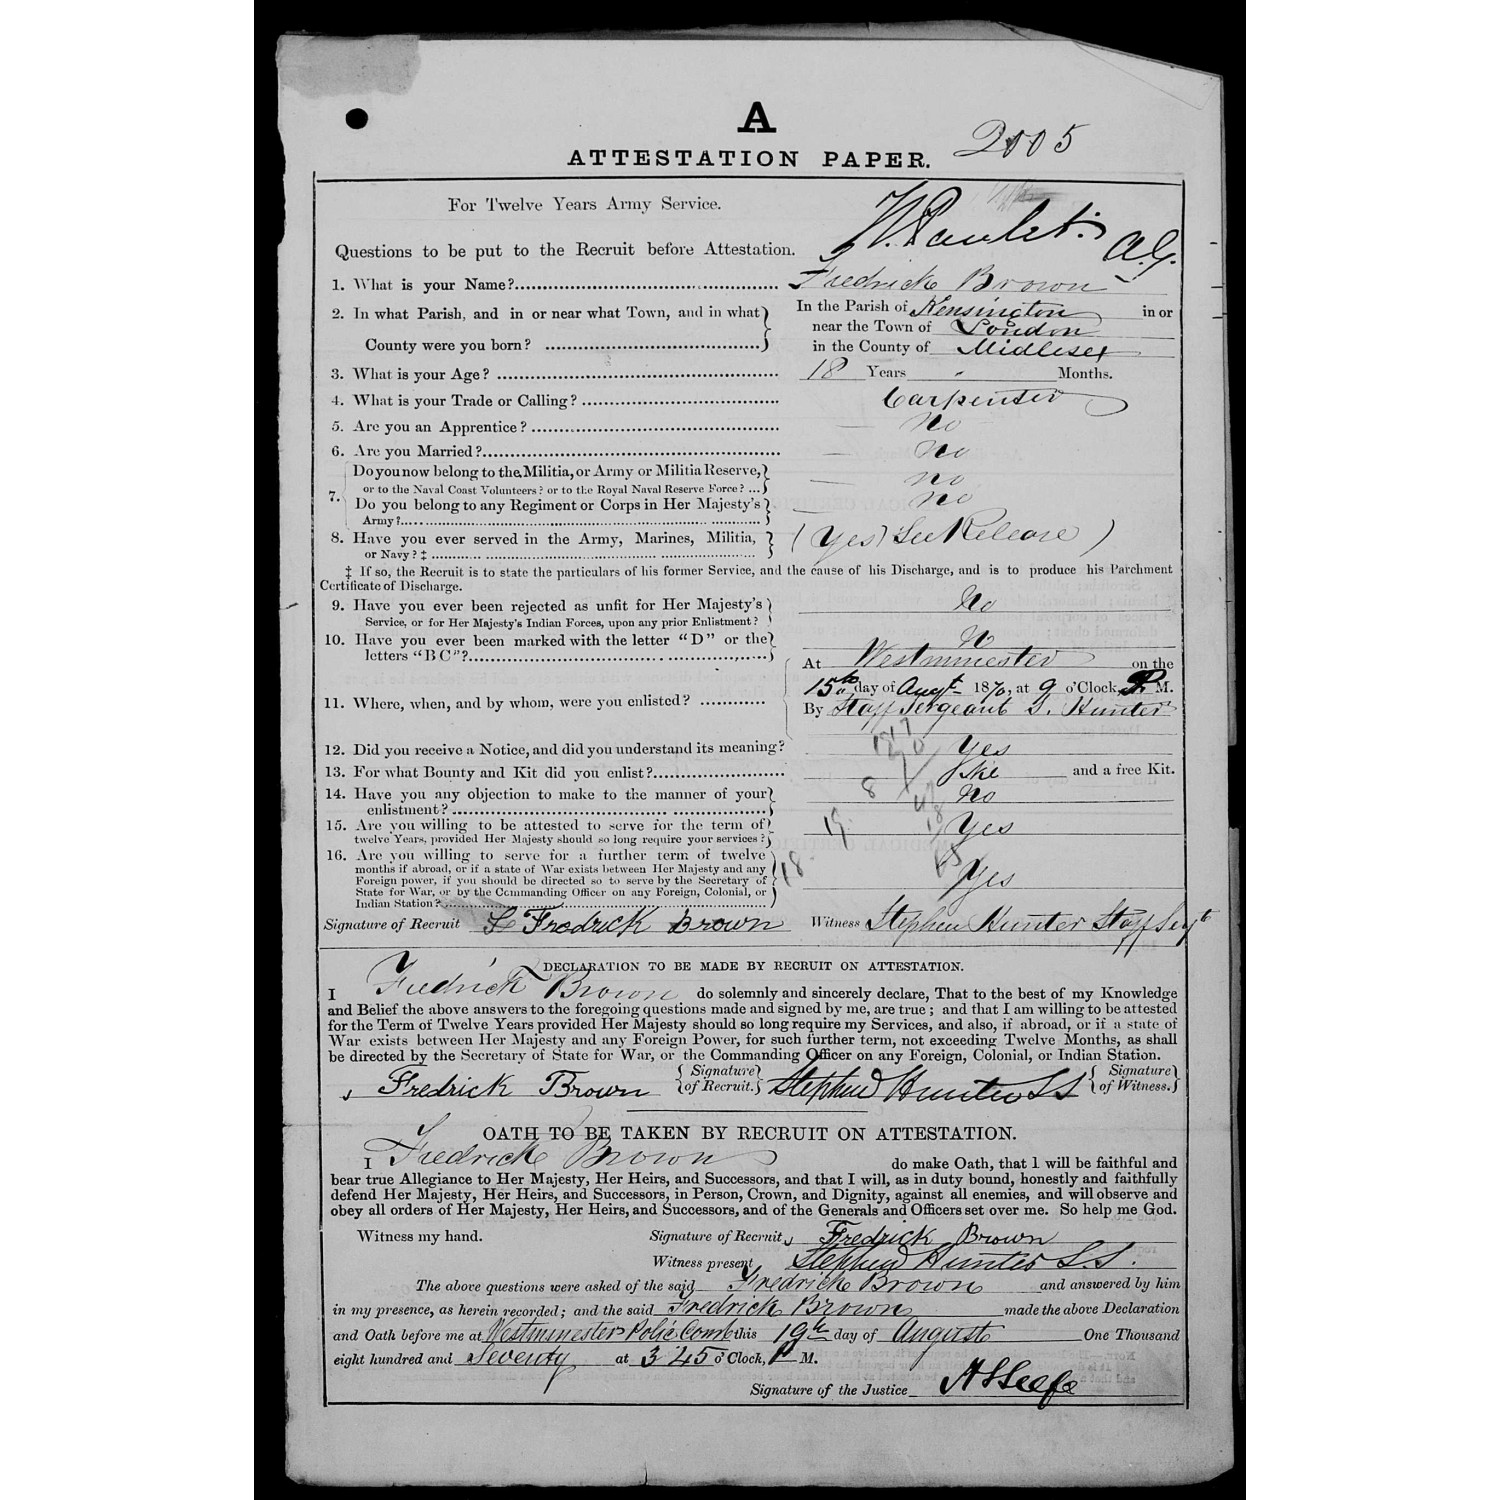 A
ATTESTATION PAPER. 2005
For Twelve Years Army Service.
Questions to be put to the Recruit before Attestation. A.G.
1. What is your Name? Fredrick Brown
2. In what Parish, and in or near what Town, and in what County were you born? In the Parish of Kensington in or
near the Town of London
in the County of Midlesex
3. What is your Age? 18 Years Months.
4. What is your Trade or Calling? Carpenter
5. Are you an Apprentice? No
6. Are you Married? No
7. Do you now belong to the Militia, or Army or Militia Reserve, no
or to the Naval Coast Volunteers? or to the Royal Naval Reserve Force? ...
Do you belong to any Regiment or Corps in Her Majesty's no
Army?
8. Have you ever served in the Army, Marines, Militia, (yes) See Release)
or Navy? ‡
‡ If so, the Recruit is to state the particulars of his former Service, and the cause of his Discharge, and is to produce his Parchment
Certificate of Discharge.
9. Have you ever been rejected as unfit for Her Majesty's No
Service, or for Her Majesty's Indian Forces, upon any prior Enlistment?
10. Have you ever been marked with the letter "D" or the No
letters "BC"?
At Westminester on the
15th day of Augt 1870, at 9 o'Clock, P. M.
11. Where, when, and by whom, were you enlisted? By Staff Sergeant S. Hunter
12. Did you receive a Notice, and did you understand its meaning? Yes
13. For what Bounty and Kit did you enlist? and a free Kit.
14. Have you any objection to make to the manner of your No
enlistment?
15. Are you willing to be attested to serve for the term of Yes
twelve Years, provided Her Majesty should so long require your services?
16. Are you willing to serve for a further term of twelve
months if abroad, or if a state of War exists between Her Majesty and any
Foreign power, if you should be directed so to serve by the Secretary of Yes
State for War, or by the Commanding Officer on any Foreign, Colonial, or
Indian Station?
Signature of Recruit Fredrick Brown Witness Stephen Hunter Staff Sergt
DECLARATION TO BE MADE BY RECRUIT ON ATTESTATION.
I Fredrick Brown do solemnly and sincerely declare, That to the best of my Knowledge
and Belief the above answers to the foregoing questions made and signed by me, are true; and that I am willing to be attested
for the Term of Twelve Years provided Her Majesty should so long require my Services, and also, if abroad, or if a state of
War exists between Her Majesty and any Foreign Power, for such further term, not exceeding Twelve Months, as shall
be directed by the Secretary of State for War, or the Commanding Officer on any Foreign, Colonial, or Indian Station.
Fredrick Brown Signature of Recruit. Stephen Hunter SS Signature of Witness.
OATH TO BE TAKEN BY RECRUIT ON ATTESTATION.
I Fredrick Brown do make Oath, that I will be faithful and
bear true Allegiance to Her Majesty, Her Heirs, and Successors, and that I will, as in duty bound, honestly and faithfully
defend Her Majesty, Her Heirs, and Successors, in Person, Crown, and Dignity, against all enemies, and will observe and
obey all orders of Her Majesty, Her Heirs, and Successors, and of the Generals and Officers set over me. So help me God.
Witness my hand. Signature of Recruit, Fredrick Brown
Witness present Stephen Hunter S.S.
The above questions were asked of the said Fredrick Brown and answered by him
in my presence, as herein recorded; and the said Fredrick Brown made the above Declaration
and Oath before me at Westminester Police Court this 19th day of August One Thousand
eight hundred and Seventy at 3 45 o'Clock, P M.
Signature of the Justice